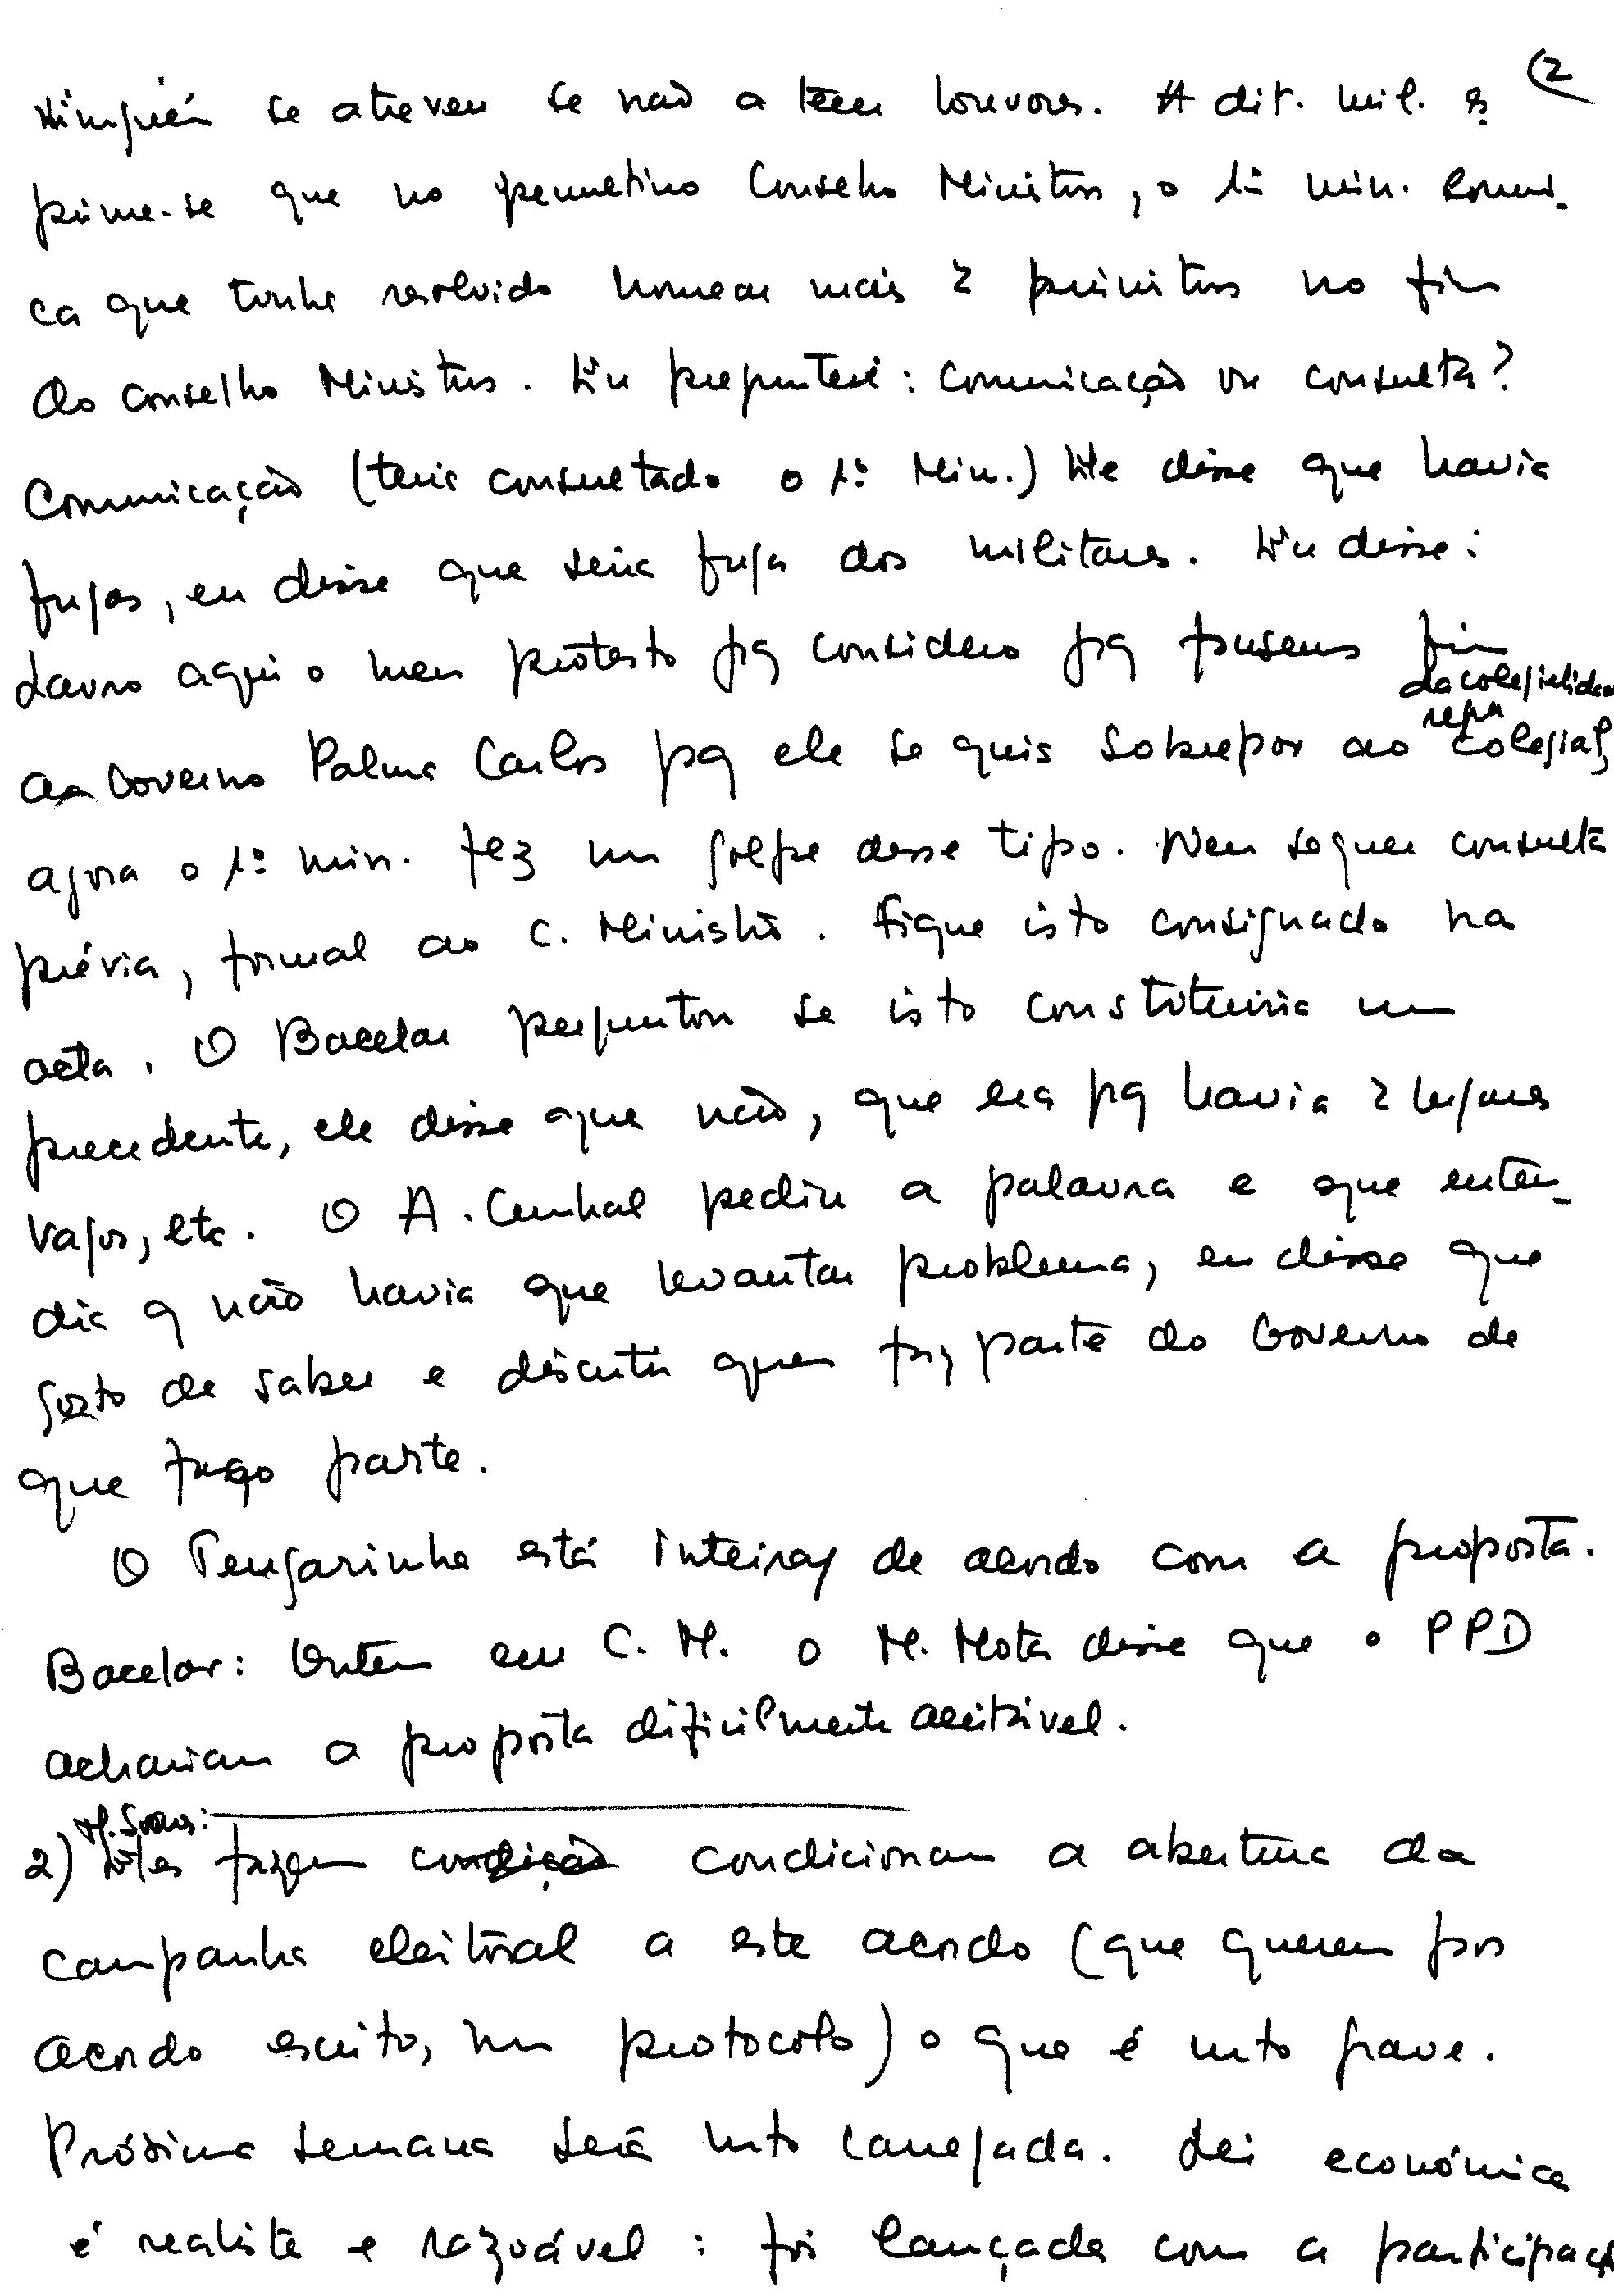 (2
Ninguém se atreveu se não a tecer louvores. A dit. mil. ex-
prime-se que no penúltimo Conselho Ministros, o 1º min. comuni-
ca que tinha resolvido nomear mais 2 ministros no fim
do Conselho Ministros. Eu preguntei: comunicação ou consulta?
Comunicação (teria consultado o 1º Min.) Ele disse que havia
fugas, eu disse que seria fuga dos militares. Eu disse:
Lavro aqui o meu protesto pq considero pq puseram fim
da colegialidade
ao Governo Palma Carlos pq ele se quis sobrepor ao colegial,
agora o 1º min. fez um golpe desse tipo. Nem sequer consulta
prévia, formal ao C. Ministros. Fique isto consignado na
acta. O Bacelar perguntou se isto constituiria um
precedente, ele disse que não, que era pq havia 2 lugares
vagos, etc. O A. Cunhal pediu a palavra e que enten-
dia q não havia que levantar problema, eu disse que
gosto de saber e discutir quem faz parte do Governo de
que faço parte.
O Tengarrinha está inteira/ de acordo com a proposta.
Bacelar: Ontem em C. M. o M. Mota disse que o PPD
achariam a proposta dificilmente aceitável.
M. Soares:
2) Eles fazem condição condicionam a abertura da
campanha eleitoral a este acordo (que querem por
acordo escrito, num protocolo) o que é mto grave.
Próxima semana será mto carregada. Lei económica
é realista e razoável: foi lançada com a participaçã